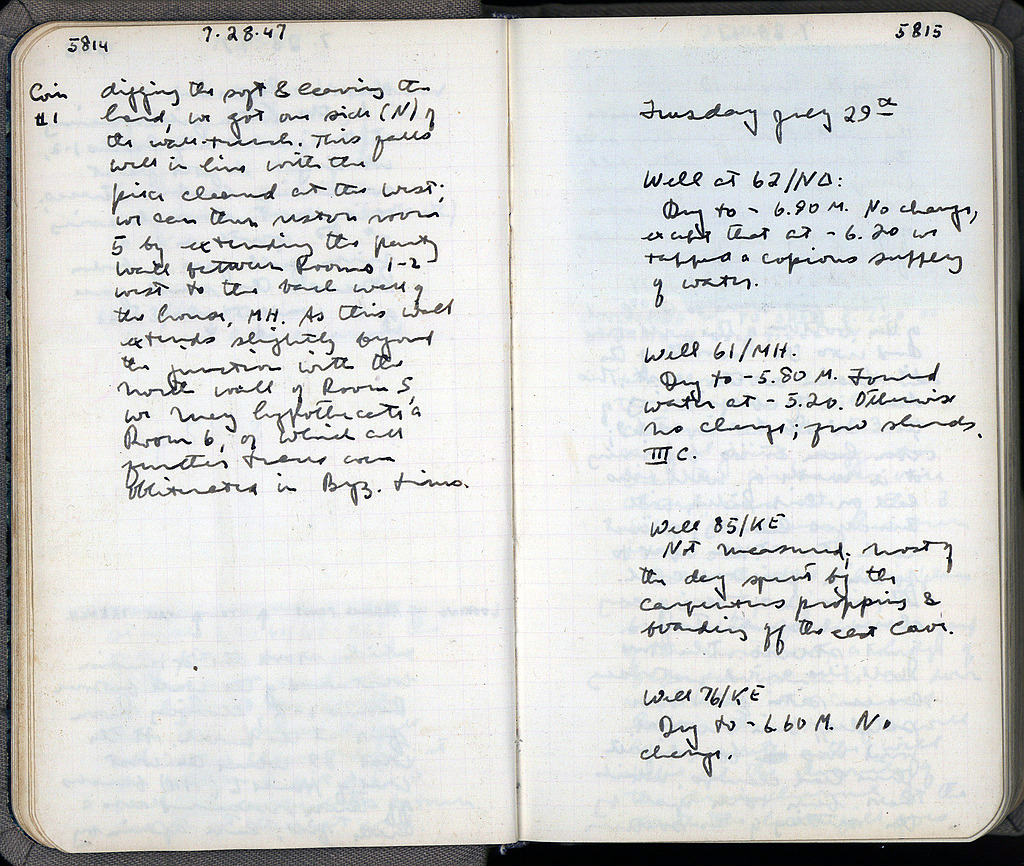 5814
7.28.47
Coin
#1
digging the soft & leaving the
hard, we got one side (N) of
the wall-trench. This falls
well in line with the
piece cleaned at the west;
we can thus restore room
5 by extending the party
wall between Rooms 1-2
west to the back wall of
the house, MH. As this wall
extends slightly beyond
the junction with the
north wall of Room 5,
we may hypothecate a
Room 6, of which all
further traces were
obliterated in Byz. times.
5815
Tuesday July 29th
Well at 62/NΔ:
Dug to -6.90 M. No change,
except that at -6.20 we
tapped a copious supply
of water.
Well 61/MH.
Dug to -5.80 M. Found
water at -5.20. Otherwise
no change; few sherds.
III C.
Well 85/KE
Not measured; most of
the day spent by the
carpenters propping &
boarding off the east cave.
Well 76/KE
Dug to -6.60 M. No
change.